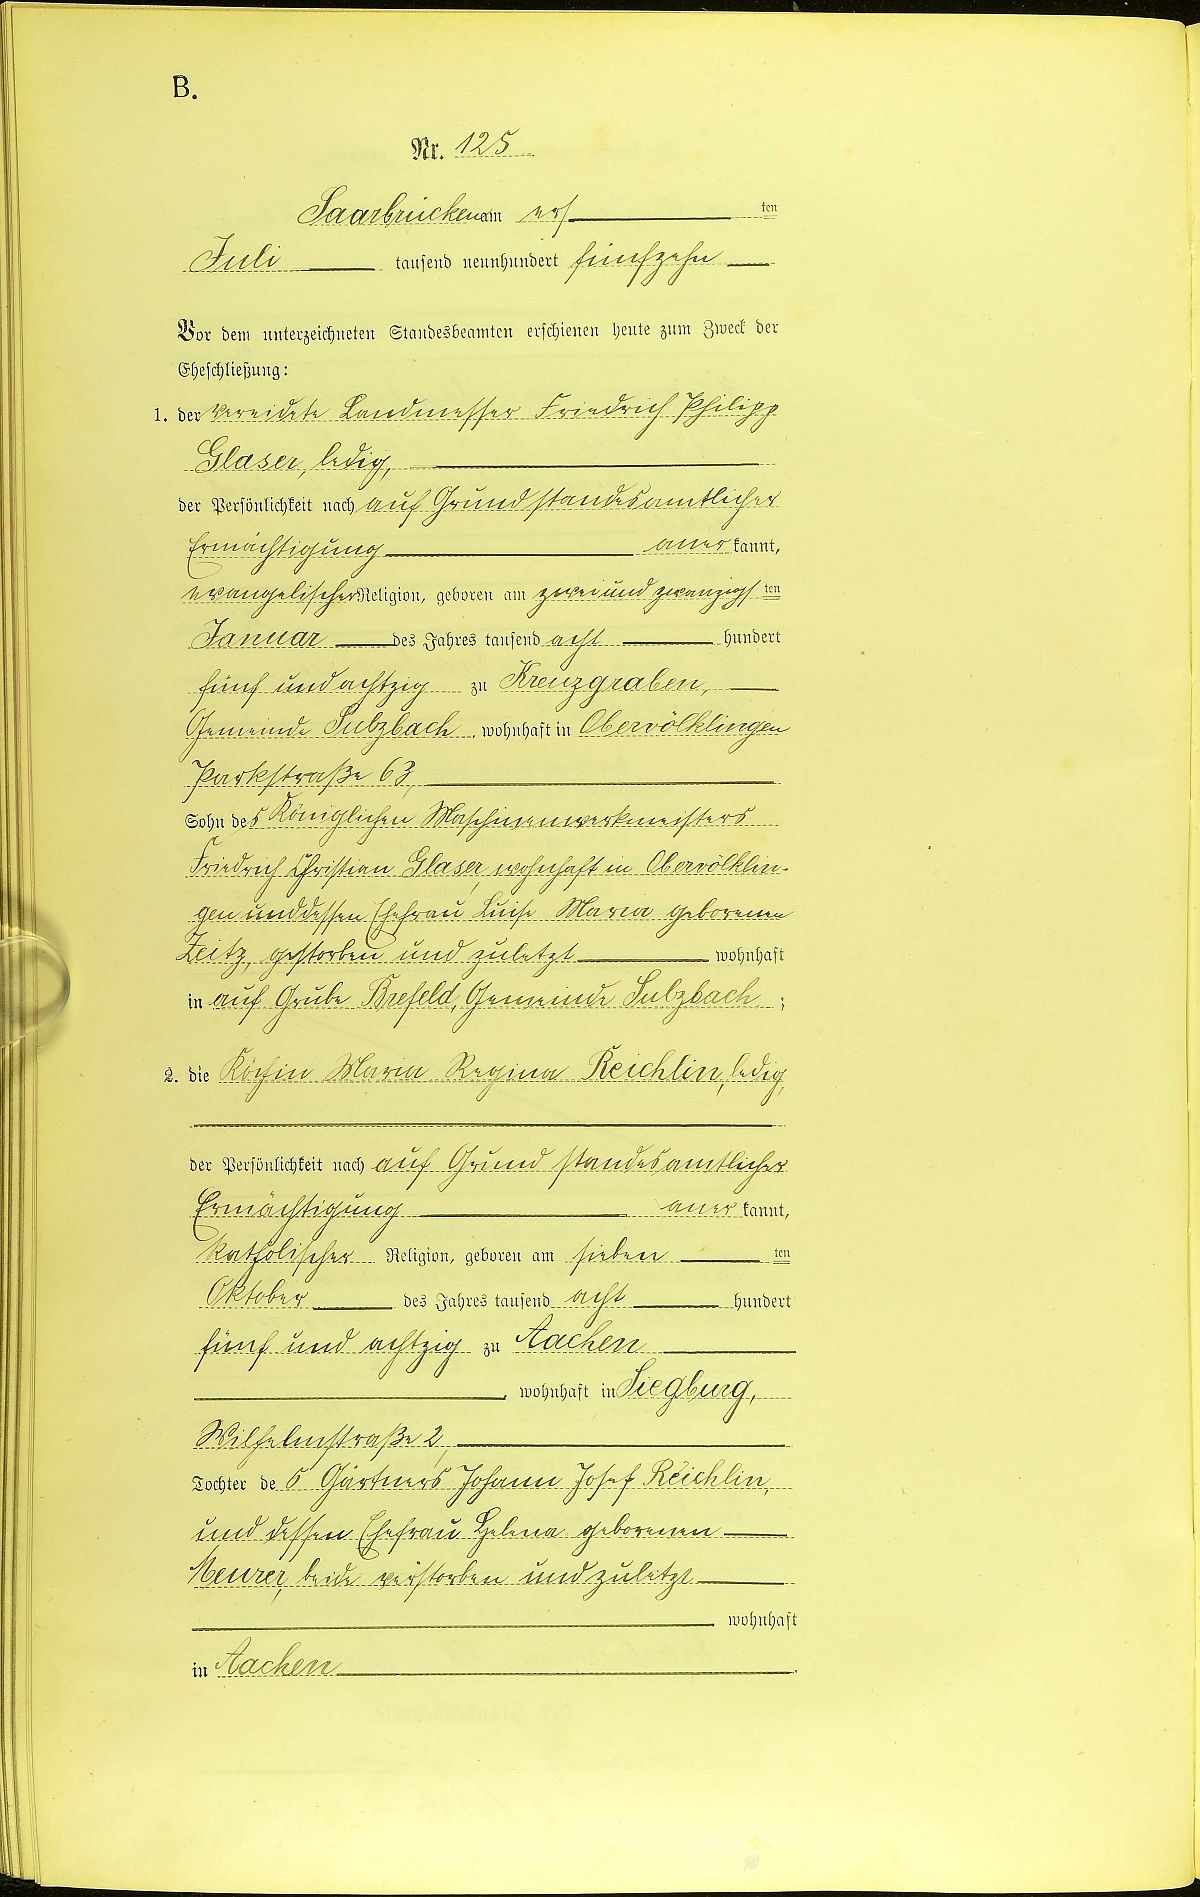 B.
Nr. 125
Saarbrücken am ersten
Juli tausend neunhundert fünfzehn
Vor dem unterzeichneten Standesbeamten erschienen heute zum Zweck der
Eheschließung:
1. der vereidete Landmesser Friedrich Philipp
Glaser, ledig,
der Persönlichkeit nach auf Grund standesamtlicher
Ermächtigung anerkannt,
evangelischer Religion, geboren am zweiundzwanzigsten
Januar des Jahres tausend acht hundert
fünf und achtzig zu Kreuzgraben,
Gemeinde Sulzbach, wohnhaft in Obervölklingen
Parkstraße 63,
Sohn des Königlichen Maschinenwerkmeisters
Friedrich Christian Glaser, wohnhaft in Obervölklin-
gen und dessen Ehefrau Luise Maria geborenen
Zeitz, gestorben und zuletzt wohnhaft
in auf Grube Brefeld, Gemeinde Sulzbach ;
2. die Köchin Maria Regina Reichlin, ledig,
der Persönlichkeit nach auf Grund standesamtlicher
Ermächtigung anerkannt,
katholischer Religion, geboren am siebenten
Oktober des Jahres tausend acht hundert
fünf und achtzig zu Aachen
, wohnhaft in Siegburg,
Wilhelmstraße 2,
Tochter des Gärtners Johann Josef Reichlin,
und dessen Ehefrau Helena geborenen
Meurer, beide verstorben und zuletzt
wohnhaft
in Aachen.